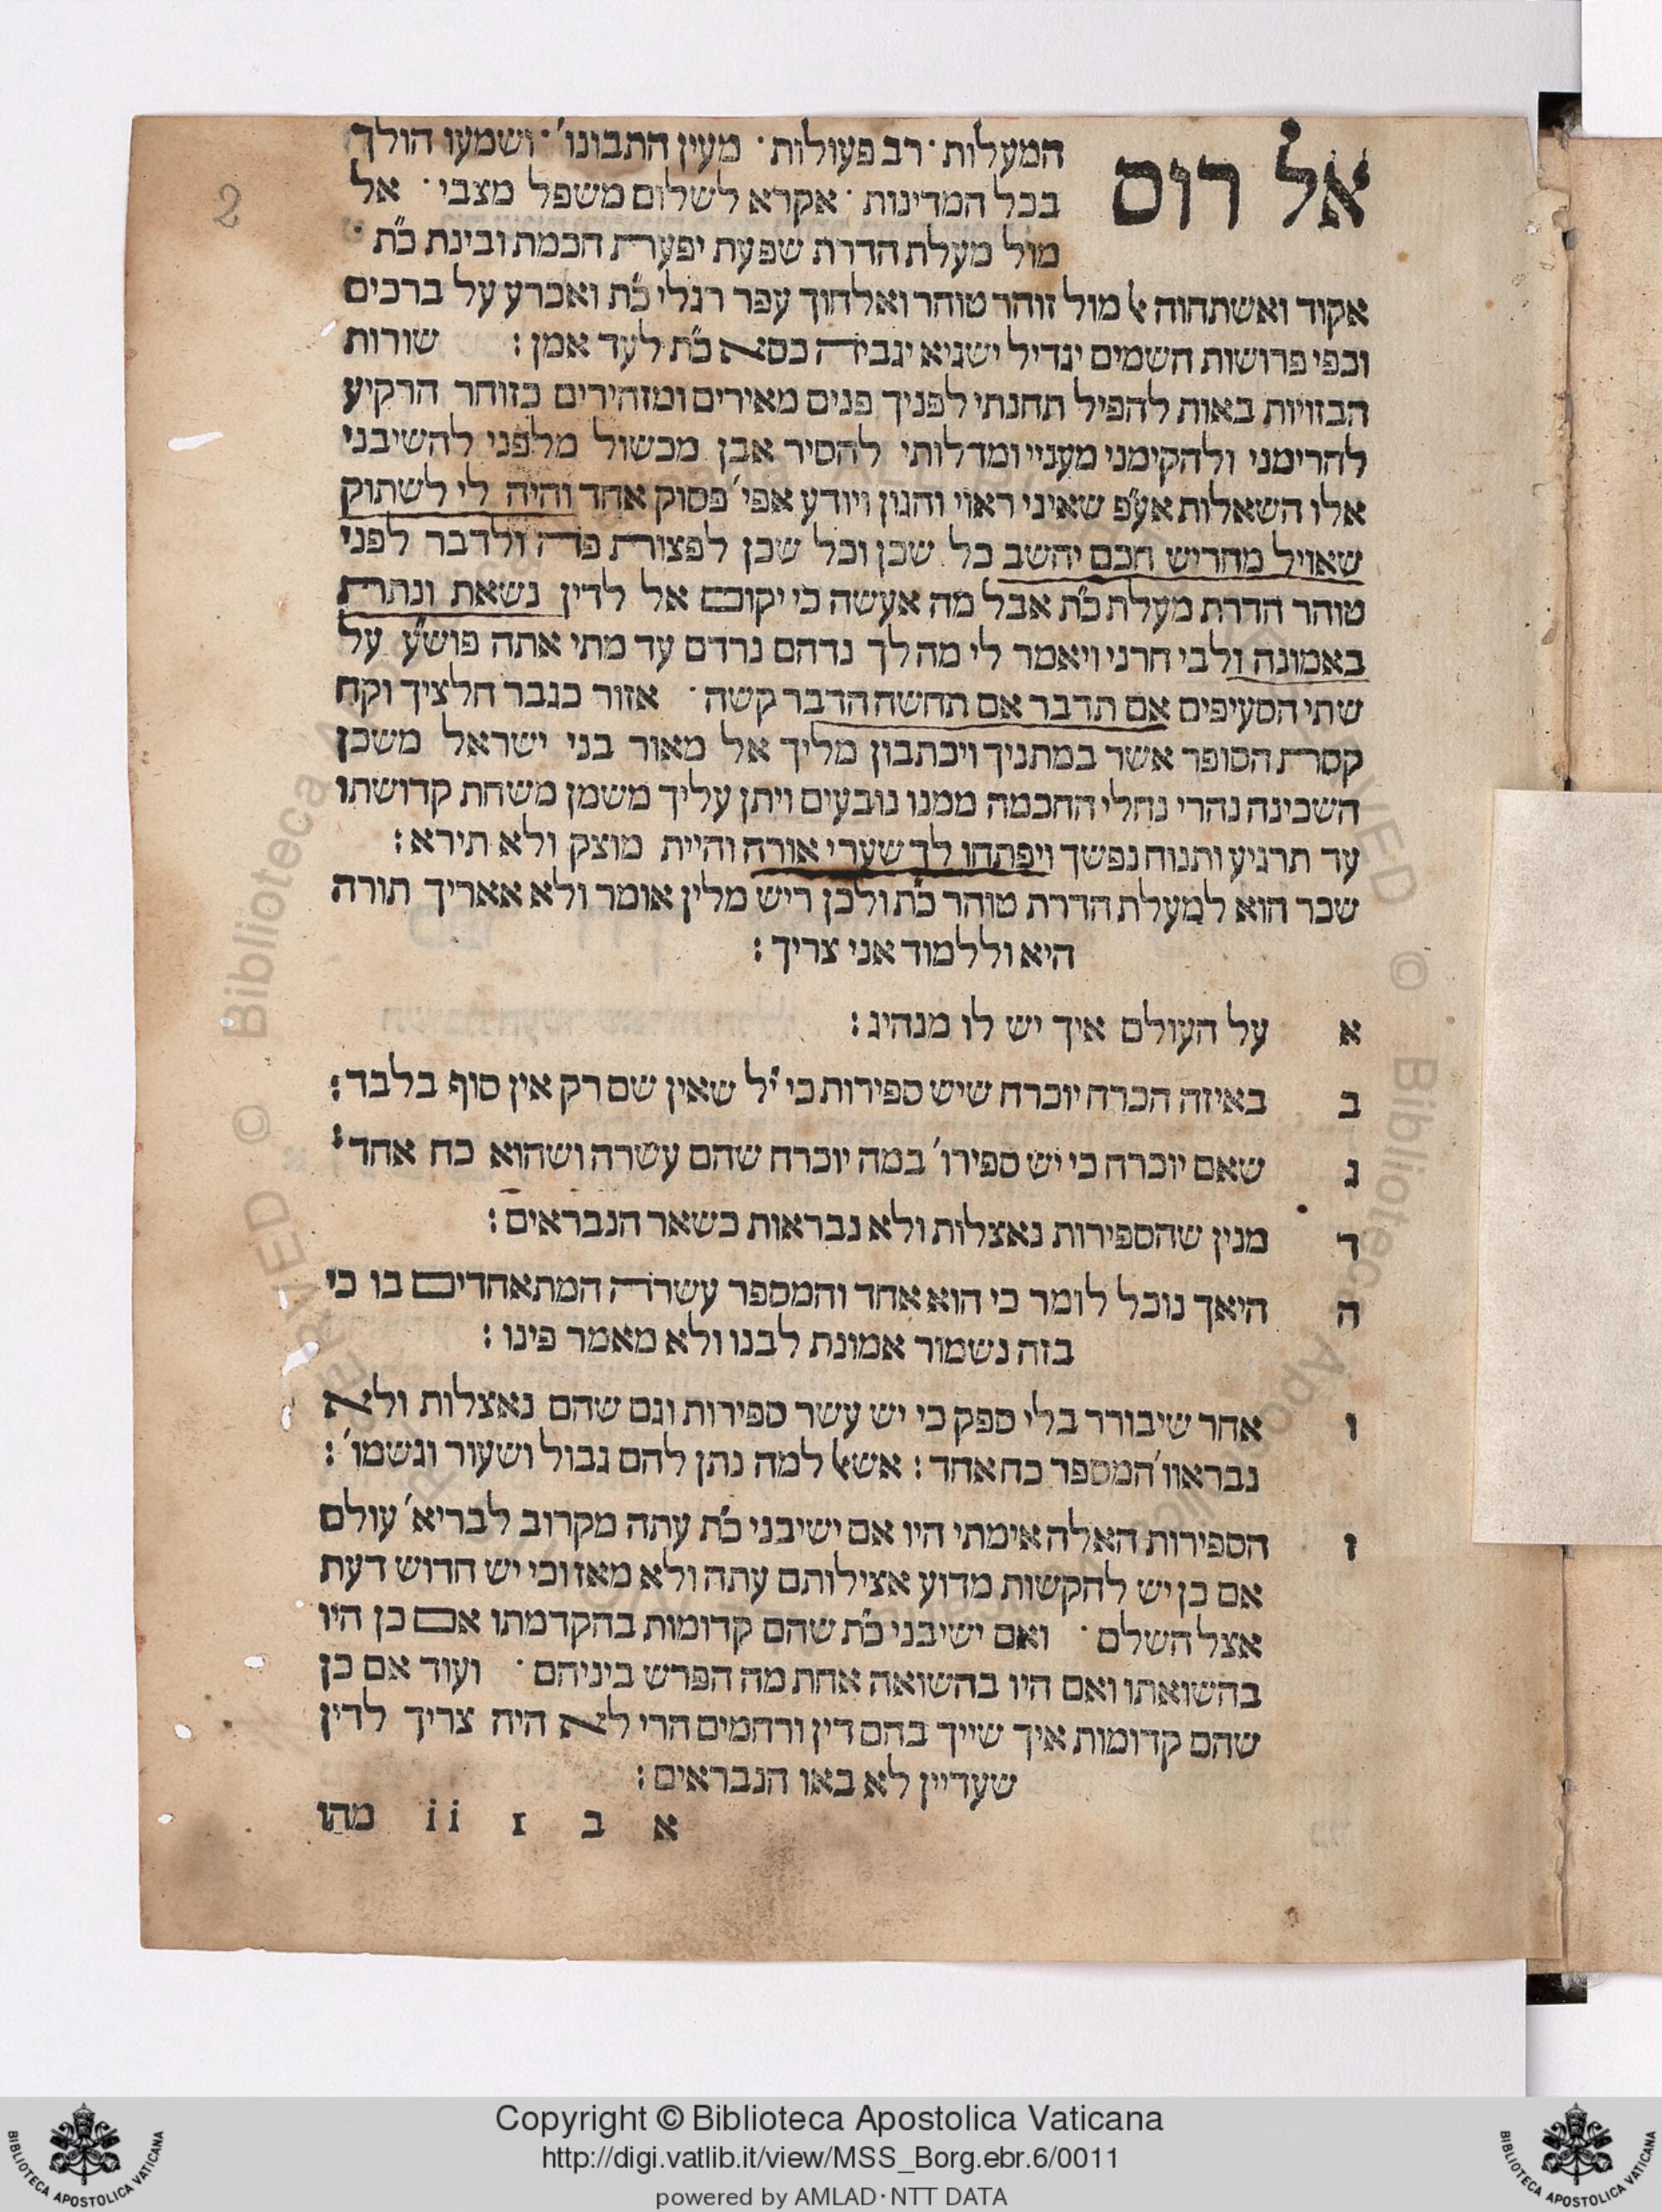 אל רום המעלות · רב פעולות · מעין התבונו׳ · ושמעו הולך
בכל המדינות · אקרא לשלום משפל מצבי · אל
מול מעלת הדרת שפעת יפערת חכמת ובינת כ״ת ·
אקוד ואשתחוה ﭏ מול זוהר טוהר ואלחוך עפר רגלי כ״ת ואכרע על ברכים
וכפי פרושות השמים יגדיל ישגיא יגביה כסא כ״ת לעד אמן : שורות
הבזויות באות להפיל תחנתי לפניך פנים מאירים ומזהירים כזוהר הרקיע
להרימני ולהקימני מעניי ומדלותי להסיר אבן מכשול מלפני להשיבני
אלו השאלות אע״פ שאיני ראוי והגון ויודע אפי׳ פסוק אחד והיה לי לשתוק
שאויל מחריש חכם יחשב כל שכן וכל שכן לפצות פה ולדבר לפני
טוהר הדרת מעלת כ״ת אבל מה אעשה כי יקום אל לדין נשאת ונתת
באמונה ולבי חרני ויאמר לי מה לך נדהם נרדם עד מתי אתה פושע על
שתי הסעיפים אם תדבר אם תחשה הדבר קשה · אזור כגבר חלציך וקח
קסת הסופר אשר במתניך ויכתבון מליך אל מאור בני ישראל משכן
השכינה נהרי נחלי החכמה ממנו נובעים ויתן עליך משמן משחת קדושתו
עד תרגיע ותנוח נפשך ויפתחו לך שערי אורה והיית מוצק ולא תירא :
שכר הוא למעלת הדרת טוהר כ״ת ולכן ריש מלין אומר ולא אאריך תורה
היא וללמוד אני צריך :
א על העולם איך יש לו מנהיג :
ב באיזה הכרח יוכרח שיש ספירות כי י״ל שאין שם רק אין סוף בלבד :
ג שאם יוכרח כי יש ספירו׳ במה יוכרח שהם עשרה ושהוא כח אחד :
ד מנין שהספירות נאצלות ולא נבראות כשאר הנבראים :
ה היאך נוכל לומר כי הוא אחד והמספר עשרה המתאחדים בו כי
בזה נשמור אמונת לבנו ולא מאמר פינו :
ו אחר שיבורר בלי ספק כי יש עשר ספירות וגם שהם נאצלות ולא
נבראו׳ והמספר כח אחד : אשﭏ למה נתן להם גבול ושעור וגשמו׳ :
ז הספירות האלה אימתי היו אם ישיבני כ״ת עתה מקרוב לבריא׳ עולם
אם כן יש להקשות מדוע אצילותם עתה ולא מאז וכי יש חדוש דעת
אצל השלם · ואם ישיבני כ״ת שהם קדומות בהקדמתו אם כן היו
בהשואתו ואם היו בהשואה אחת מה הפרש ביניהם · ועוד אם כן
שהם קדומות איך שייך בהם דין ורחמים הרי לא היה צריך לדין
שעדיין לא באו הנבראים :
א ב 1 ii מהו
2
© Biblioteca Apostolica Vaticana
Copyright © Biblioteca Apostolica Vaticana
http://digi.vatlib.it/view/MSS_Borg.ebr.6/0011
powered by AMLAD·NTT DATA
BIBLIOTECA APOSTOLICA VATICANA
BIBLIOTECA APOSTOLICA VATICANA